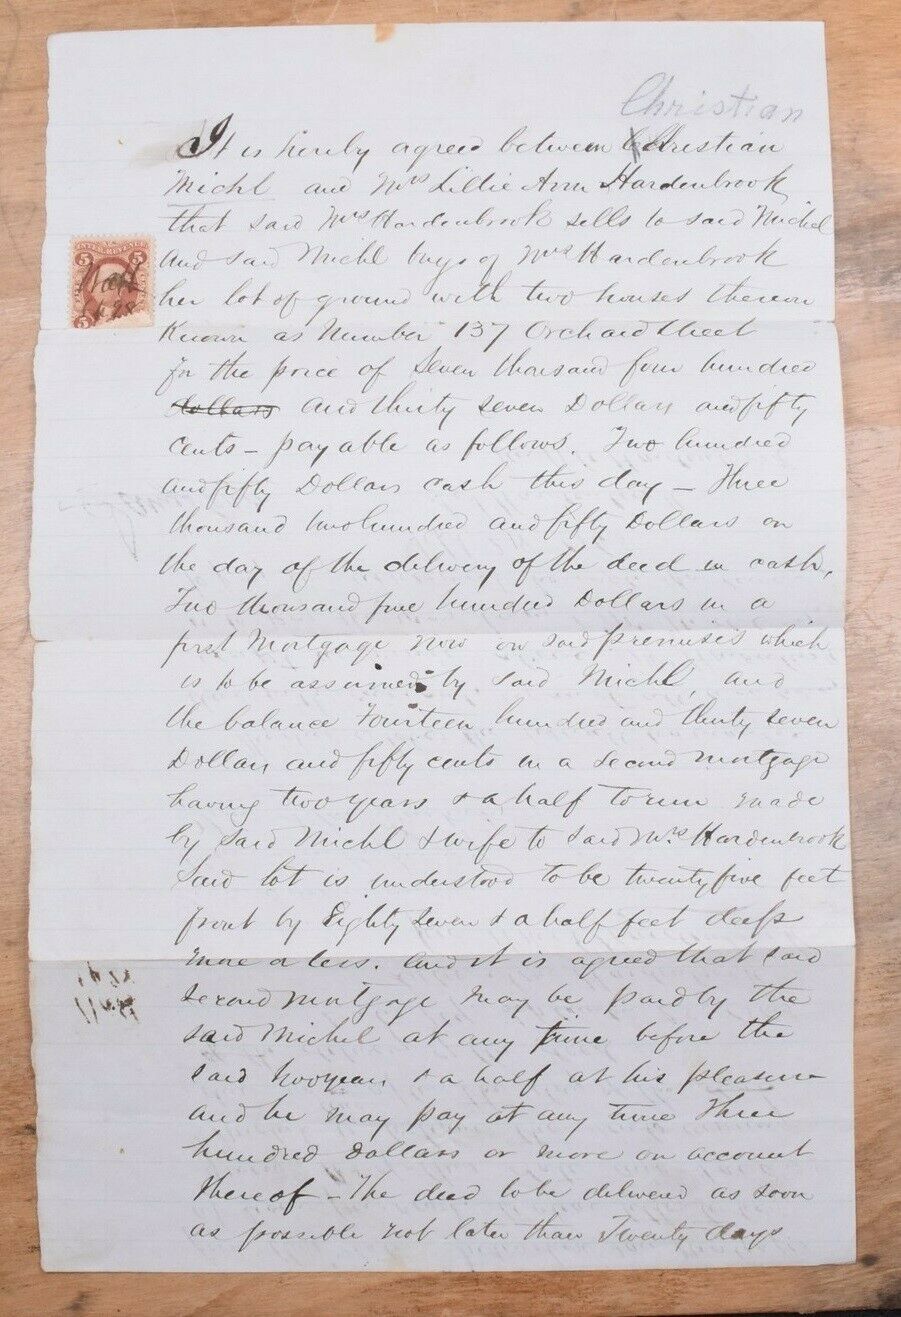 Christian
It is hereby agreed between Christian
Michl and Mrs Lillie Ann Hardenbrook
that said Mrs Hardenbrook sells to said Michel
and said Michl buys of Mrs Hardenbrook
her lot of ground with two houses thereon
Known as Number 137 Orchard Street
for the price of Seven thousand four hundred
dollars and thirty seven Dollars and fifty
cents - payable as follows. Two hundred
and fifty Dollars cash this day - Three
thousand two hundred and fifty Dollars on
the day of the delivery of the deed in cash,
Two thousand five hundred Dollars in a
first Mortgage now on said premises which
is to be assumed by said Michl, and
the balance Fourteen hundred and thirty seven
Dollars and fifty cents in a second mortgage
having two years & a half to run made
by said Michl & wife to said Mrs Hardenbrook
Said lot is understood to be twenty five feet
front by Eighty Seven & a half feet deep
more or less. And it is agreed that said
second mortgage may be paid by the
said Michel at any time before the
said two years & a half at his pleasure
and he may pay at any time Three
hundred Dollars or more on account
thereof - The deed to be delivered as soon
as possible not later than Twenty days
5 5
5